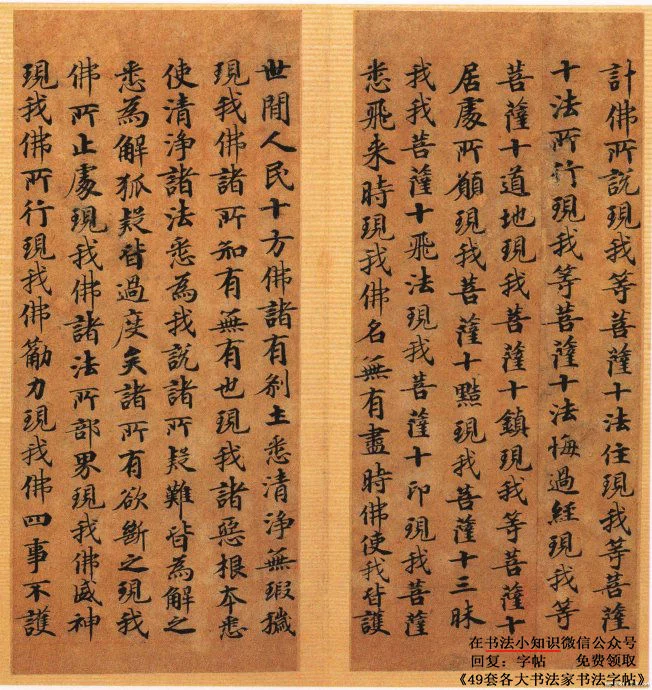 計佛所說現我等菩薩十法住現我等菩薩
十法所行現我等菩薩十法悔過經現我等
菩薩十道地現我菩薩十鎮現我等菩薩十
居處所願現我菩薩十黠現我菩薩十三昧
我我菩薩十飛法現我菩薩十印現我菩薩
悉飛来時現我佛名無有盡時佛使我皆護
世間人民十方佛諸有剎土悉清淨無瑕穢
現我佛諸所知有無有也現我諸惡根夲悉
使清淨諸法悉為我說諸所疑難皆為解之
悉為解狐疑皆過度矣諸所有欲斷之現我
佛所止處現我佛諸法所部界現我佛威神
現我佛所行現我佛力現我佛四事不護
在书法小知识微信公众号
回复：字帖 免费领取
《49套各大书法家书法字帖》